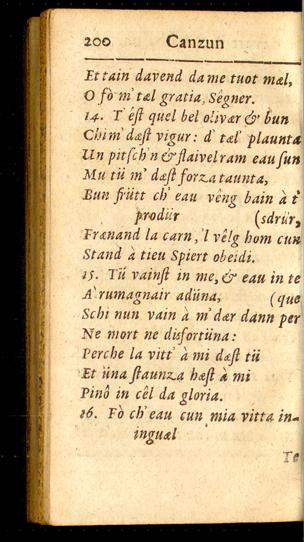 200 Canzun
Et tain davend da me tuot mæl,
O fò m' tæl gratia, Sêgner.
14. T' êſt quel bel olivær & bun
Chi m' dæſt vigur: d' tæl' plaunta
Un pitſch'n & flaivel ram eau ſun
Mu tü m' dæſt forza taunta,
Bun früt̃t ch' eau vêng bain à t'
prodür (sdrür,
Frænand la carn, 'l vêlg hom cun
Stand à tieu Spiert obeidi.
15. Tü vainſt in me, & eau in te
A' rumagnair adüna, (que
Schi nun vain à m' dær dann per
Ne mort ne disfortüna:
Perche la vitt' à mi dæſt tü
Et üna ſtaunza hæſt à mi
Pinô in cêl da gloria.
16. Fò ch' eau cun mia vitta in-
inguæl
Te